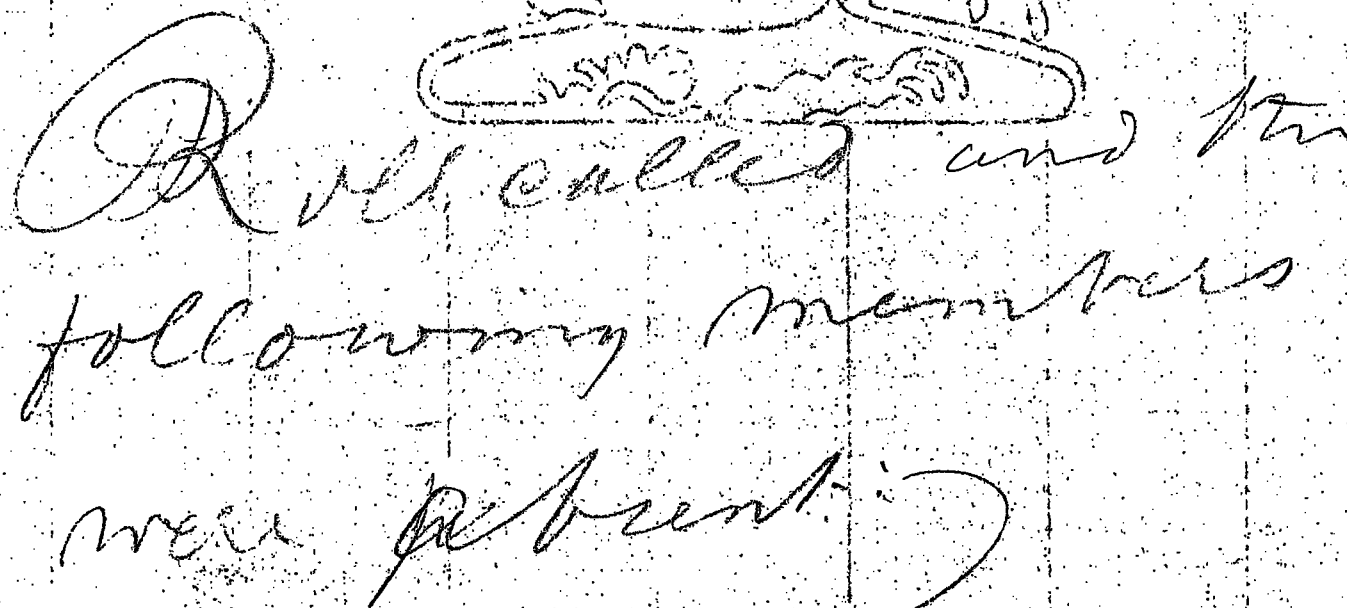 Roll called and the
following members
were